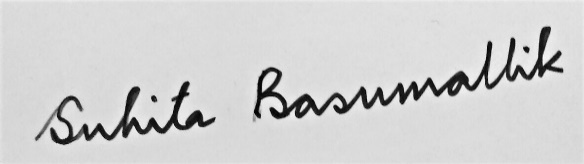 Suhita Basumallik